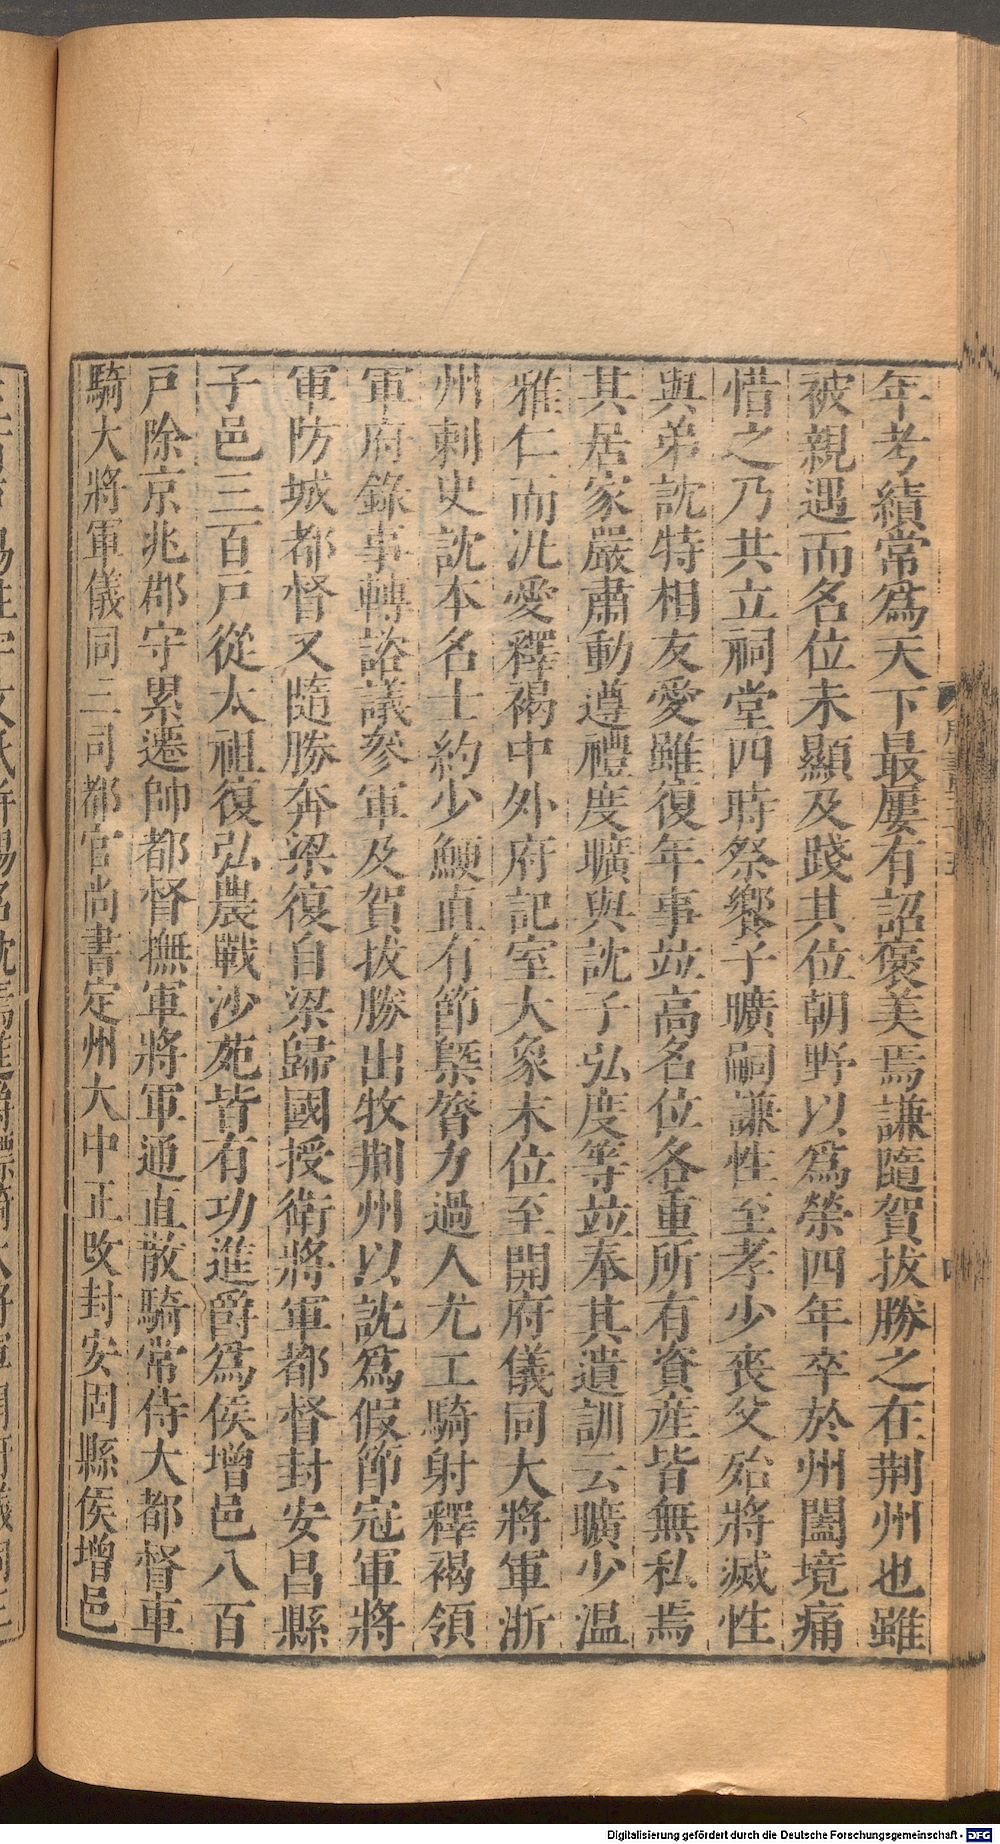 年考績常爲天下最屢有詔褒美焉謙隨賀拔勝之在荆州也雖
被親遇而名位未顯及踐其位朝野以爲榮四年卒於州闔境痛
惜之乃共立祠堂四時祭饗子曠嗣謙性至孝少喪父殆將滅性
與弟訦特相友愛雖復年事竝高名位各重所有資産皆無私焉
其居家嚴肅動遵禮度曠與訦子弘度等竝奉其遺訓云曠少温
雅仁而汎愛釋褐中外府記室大象末位至開府儀同大將軍浙
州刺史訦本名士約少鯁直有節槩膂力過人尤工騎射釋褐領
軍府錄事轉諮議參軍及賀拔勝出牧荆州以訦爲假節冠軍將
軍防城都督又隨勝奔梁復自梁歸國授衛將軍都督封安昌縣
子邑三百戸從太祖復弘農戰沙苑皆有功進爵爲侯增邑八百
戸除京兆郡守累遷帥都督撫軍將軍通直散騎常侍大都督車
騎大將軍儀同三司都官尚書定州大中正改封安固縣侯增邑
Digitalisierung gefördert durch die Deutsche Forschungsgemeinschaft - DFG